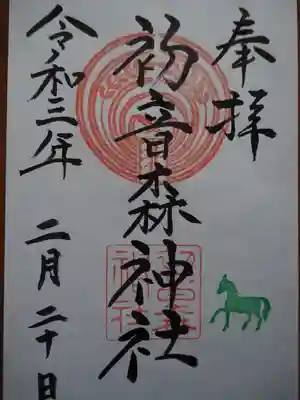 奉拝
初音森神社
令和三年
二月二十日